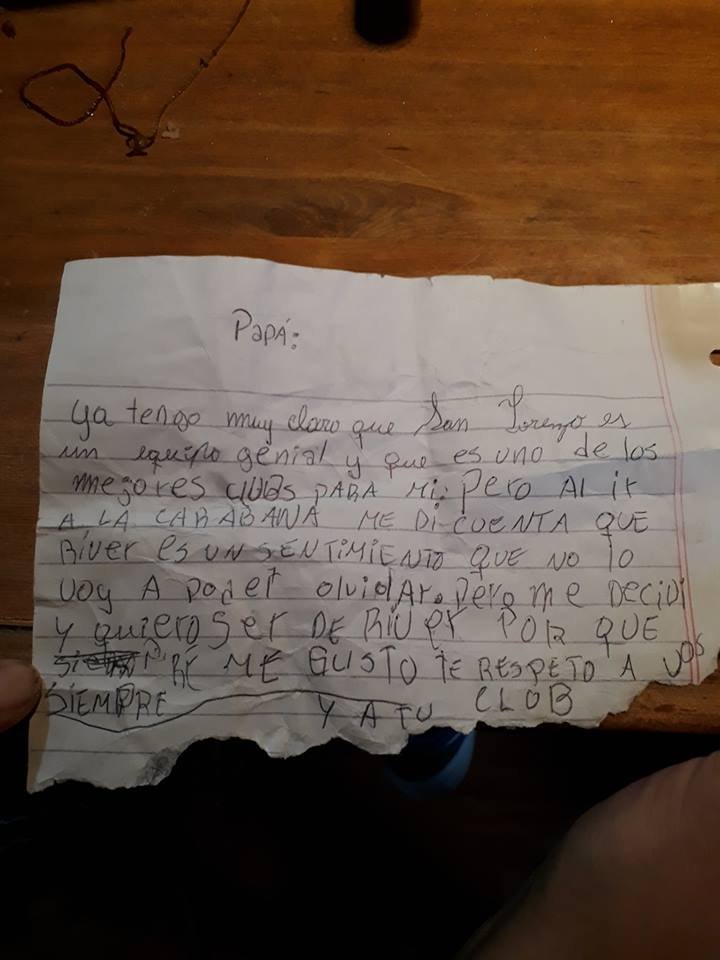 Papá:
ya tengo muy claro que San Lorenzo es
un equipo genial y que es uno de los
mejores clubs PARA Mi. Pero Al ir
A LA CARABANA ME Di CUENTA QUE
River es UN SENTIMIENTO QUE NO lo
voy A poder olvidAr. Pero me Decidi
y quiero ser DE River POR QUE
RE ME GUSTO TE RESPETO A VOS
SIEMPRE Y A TU CLUB